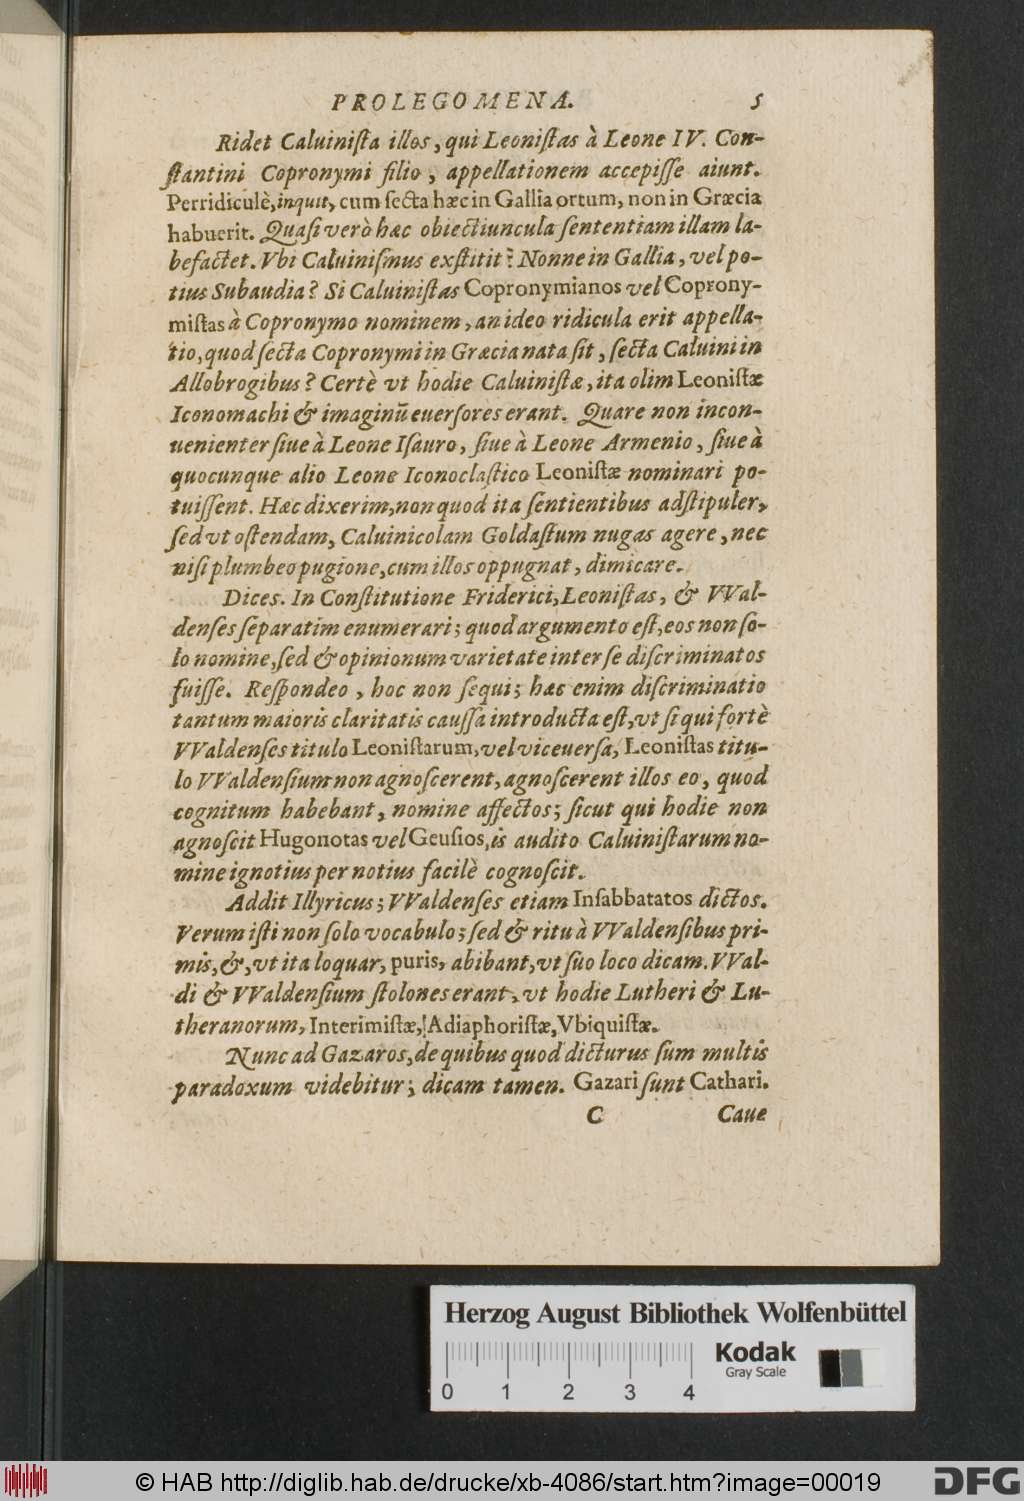 PROLEGOMENA. 5
Ridet Caluiniſta illos, qui Leoniſtas à Leone IV. Con-
ſtantini Copronymi filio, appellationem accepiſſe aiunt.
Perridiculè, inquit, cum ſecta hæc in Gallia ortum, non in Græcia
habuerit. Quaſi verò hæc obiectiuncula ſententiam illam la-
befactet. Vbi Caluiniſmus exſtitit? Nonne in Gallia, vel po-
tius Subaudia? Si Caluiniſtas Copronymianos vel Coprony-
miſtas à Copronymo nominem, an ideo ridicula erit appella-
tio, quod ſecta Copronymi in Græcia nata ſit, ſecta Caluini in
Allobrogibus? Certè vt hodie Caluiniſtæ, ita olim Leoniſtæ
Iconomachi & imaginū euerſores erant. Quare non incon-
uenienter ſiue à Leone Iſauro, ſiue à Leone Armenio, ſiue à
quocunque alio Leone Iconoclaſtico Leoniſtæ nominari po-
tuiſſent. Hæc dixerim, non quod ita ſentientibus adſtipuler,
ſed vt oſtendam, Caluinicolam Goldaſtum nugas agere, nec
niſi plumbeo pugione, cum illos oppugnat, dimicare.
Dices. In Conſtitutione Friderici, Leoniſtas, & VVal-
denſes ſeparatim enumerari; quod argumento eſt, eos non ſo-
lo nomine, ſed & opinionum varietate inter ſe diſcriminatos
fuiſſe. Reſpondeo, hoc non ſequi; hæc enim diſcriminatio
tantum maioris claritatis cauſſa introducta eſt, vt ſi qui fortè
VValdenſes titulo Leoniſtarum, vel vice uerſa, Leoniſtas titu-
lo VValdenſium non agnoſcerent, agnoſcerent illos eo, quod
cognitum habebant, nomine affectos; ſicut qui hodie non
agnoſcit Hugonotas vel Geuſios, is audito Caluiniſtarum no-
mine ignotius per notius facilè cognoſcit.
Addit Illyricus; VValdenſes etiam Inſabbatatos dictos.
Verum iſti non ſolo vocabulo; ſed & ritu à VValdenſibus pri-
mis, &, vt ita loquar, puris, abibant, vt ſuo loco dicam. VVal-
di & VValdenſium ſtolones erant, vt hodie Lutheri & Lu-
theranorum, Interimiſtæ, Adiaphoriſtæ, Vbiquiſtæ.
Nunc ad Gazaros, de quibus quod dicturus ſum multis
paradoxum videbitur; dicam tamen. Gazari ſunt Cathari.
C Caue
Herzog August Bibliothek Wolfenbüttel
0 1 2 3 4
Kodak
Gray Scale
© HAB http://diglib.hab.de/drucke/xb-4086/start.htm?image=00019
DFG